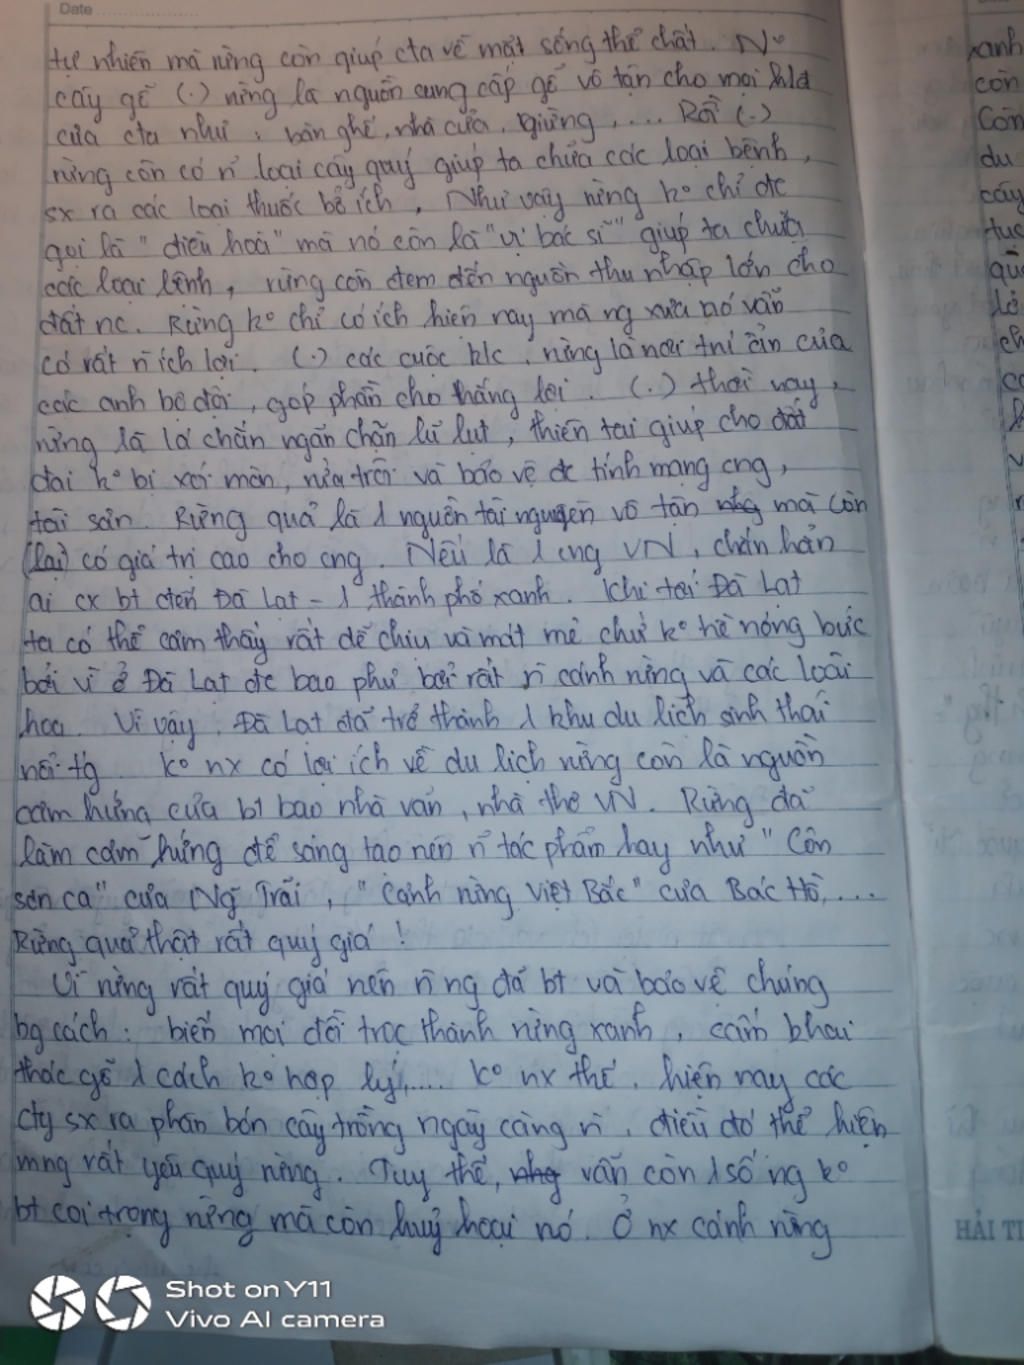 Date
tự nhiên mà rừng còn giúp cta về mặt sống thể chất. N°
cây gỗ (.) rừng là nguồn cung cấp gỗ vô tận cho mọi
của cta như: bàn ghế, nhà cửa, giường, .... Rồi (.)
rừng còn có ñ loại cây quý giúp ta chữa các loại bệnh,
sx ra các loại thuốc bổ ích. Như vậy rừng k° chỉ đc
gọi là "điều hoà" mà nó còn là "vị bác sĩ" giúp ta chữa
các loại bệnh, rừng còn đem đến nguồn thu nhập lớn cho
đất nc. Rừng k° chỉ có ích hiện nay mà ng xưa nó vẫn
có rất ñ ích lợi. (.) các cuộc k/c, rừng là nơi trú ẩn của
các anh bộ đội, góp phần cho thắng lợi. (.) thời nay,
rừng là lá chắn ngăn chặn lũ lụt, thiên tai giúp cho đất
đai k° bị xói mòn, rửa trôi và bảo vệ đc tính mạng cng,
tài sản. Rừng quả là 1 nguồn tài nguyên vô tận nhg mà còn
(lại) có giá trị cao cho cng. Nếu là 1 cng VN, chắn hẳn
ai cx bt đến Đà Lạt - 1 thành phố xanh. Khi tới Đà Lạt
ta có thể cảm thấy rất dễ chịu và mát mẻ chứ k° hề nóng bức
bởi vì ở Đà Lạt đc bao phủ bởi rất ñ cánh rừng và các loài
hoa. Vì vậy, Đà Lạt đã trở thành 1 khu du lịch sinh thái
nổi tg. K° nx có lợi ích về du lịch rừng còn là nguồn
cảm hứng của bt bao nhà văn, nhà thơ VN. Rừng đã
làm cảm hứng để sáng tạo nên ñ tác phẩm hay như "Côn
sơn ca" của Ng Trãi, "Cảnh rừng Việt Bắc" của Bác Hồ,....
Rừng quả thật rất quý giá!
Vì rừng rất quý giá nên ñ ng đã bt và bảo vệ chúng
bg cách: biến mọi đồi trọc thành rừng xanh, cấm khai
thác gỗ 1 cách k° hợp lý,.... K° nx thế, hiện nay các
cty sx ra phân bón cây trồng ngày càng ñ, điều đó thể hiện
mng rất yêu quý rừng. Tuy thế, nhg vẫn còn 1 số ng k°
bt coi trọng rừng mà còn huỷ hoại nó. Ở nx cánh rừng
xanh
còn
Còn
du
cây
tục
HẢI TI
Shot on Y11
Vivo AI camera